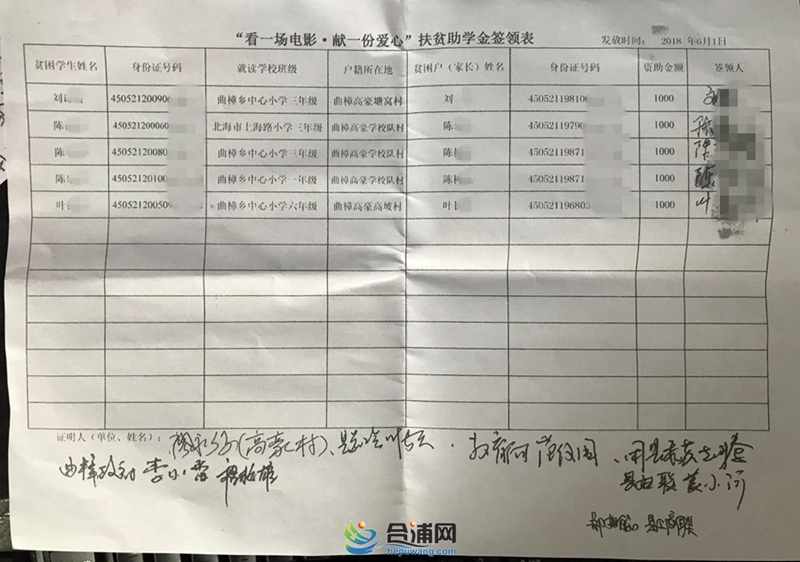 “看一场电影·献一份爱心”扶贫助学金签领表
发放时间: 2018 年6月1日
贫困学生姓名 身份证号码 就读学校班级 户籍所在地 贫困户（家长）姓名 身份证号码 资助金额 签领人
刘 450521200906 曲樟乡中心小学三年级 曲樟高豪塘窝村 刘 45052119810 1000 刘
陈 45052120060 北海市上海路小学三年级 曲樟高豪学校队村 陈 4505211979 1000 陈
陈 45052120080 曲樟乡中心小学三年级 曲樟高豪学校队村 陈 4505211987 1000 陈
陈 4505212010 曲樟乡中心小学一年级 曲樟高豪学校队村 陈 4505211987 1000 陈
叶 45052120050 曲樟乡中心小学六年级 曲樟高豪高坡村 叶 45052119680 1000 叶
证明人（单位、姓名）： (高豪村)、 教育局
曲樟 李小雷
县妇联 小河
合浦网
hepuwang.com